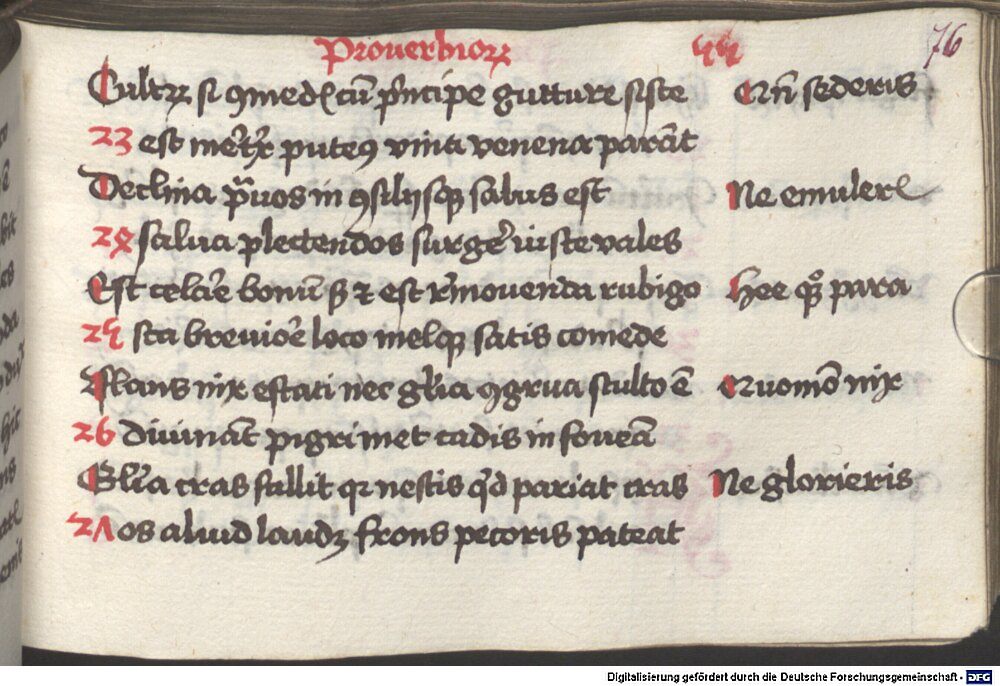 Prouerbiorꝝ 44 76
Cultrꝝ si ꝯmedꝭ cū pͥncipe gutture siste Qn̄ sederis
23 est mer̄tͥx puteꝰ vina venena parāt
Declina pͣuos in ꝯsilijsqꝫ salus est Ne emulerꝭ
24 salua plectendos surgēt iuste vales
Est celar̄e bonū sꝫ ⁊ est rͥmouenda rubigo Hee qꝫ para
25 sta breuior̄e loco melqꝫ satis comede
Aꝉans nix estati nec gl̄ia ꝯgrua stulto ē Quomō nix
26 diuināt pigri met cadis in foueā
Gl̄ia cras fallit qꝛ nescis qͥd pariat cras Ne glorieris
27 os aliud laudꝫ frons pecoris pateat
Digitalisierung gefördert durch die Deutsche Forschungsgemeinschaft - DFG